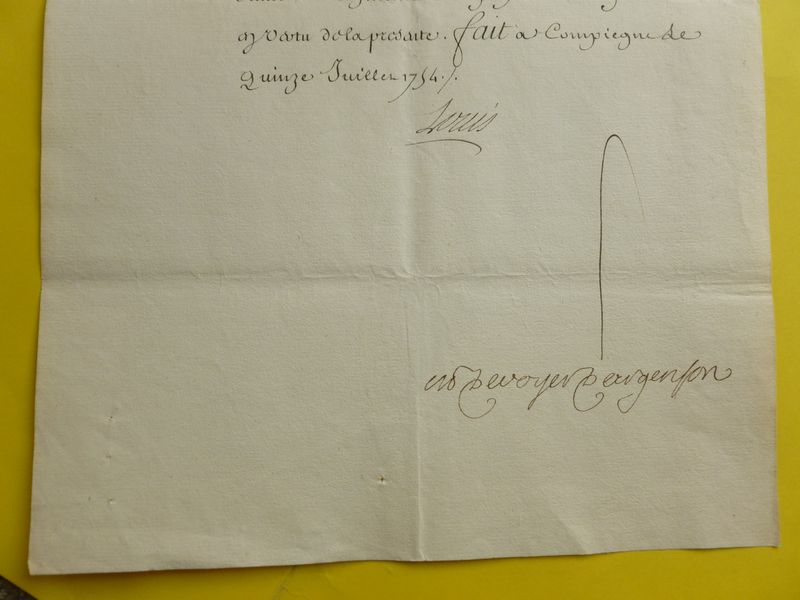 en vertu de la presente. fait a Compiegne Le
Quinze Juillet 1754 ./.
Louis
M de voyer D'argenson